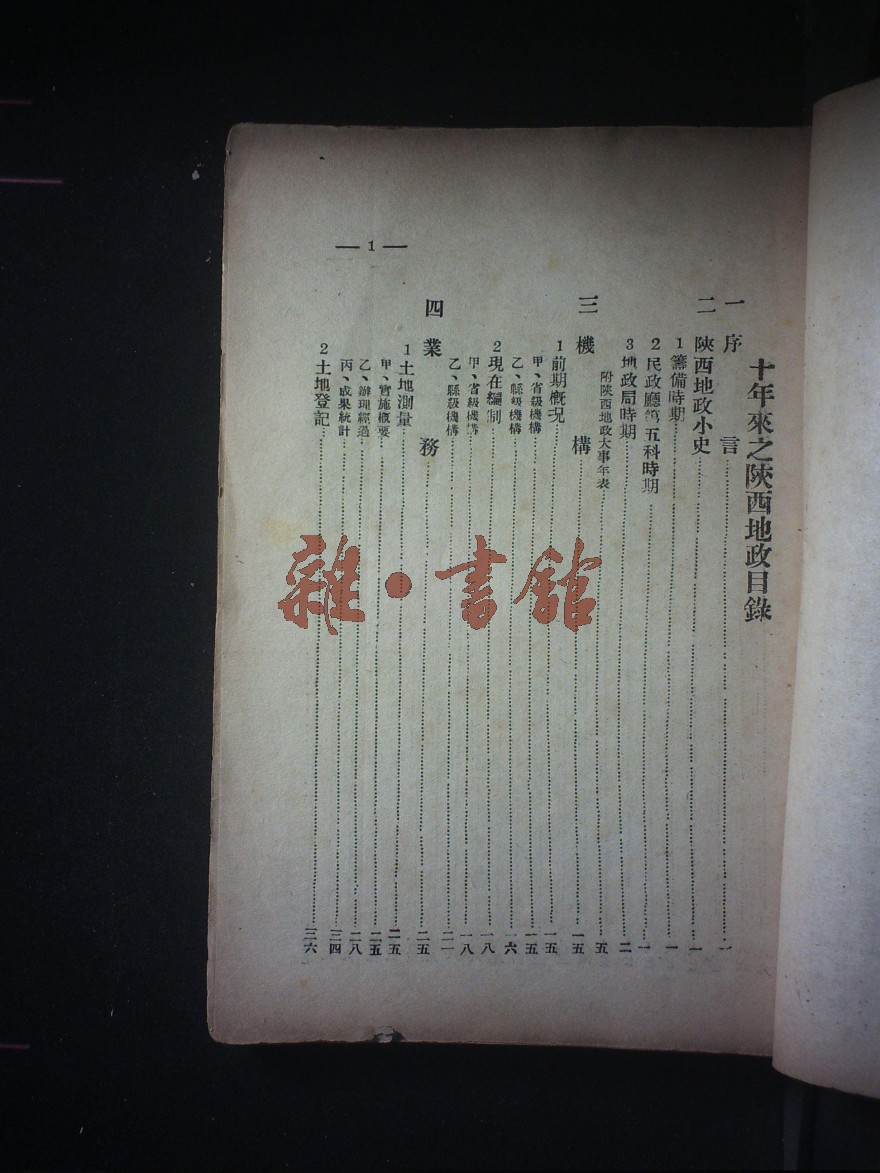 十年來之陝西地政目錄
一 序 言……一
二 陝西地政小史……一
1 籌備時期……一
2 民政廳第五科時期……一
3 地政局時期……二
附陝西地政大事年表……五
三 機 構……一五
1 前期概況……一五
甲、省級機構……一五
乙、縣級機構……一六
2 現在編制……一八
甲、省級機構……一八
乙、縣級機構……二一
四 業 務……二五
1 土地測量……二五
甲、實施概要……二五
乙、辦理經過……二八
丙、成果統計……三四
2 土地登記……三六
— 1 —
雜·書館